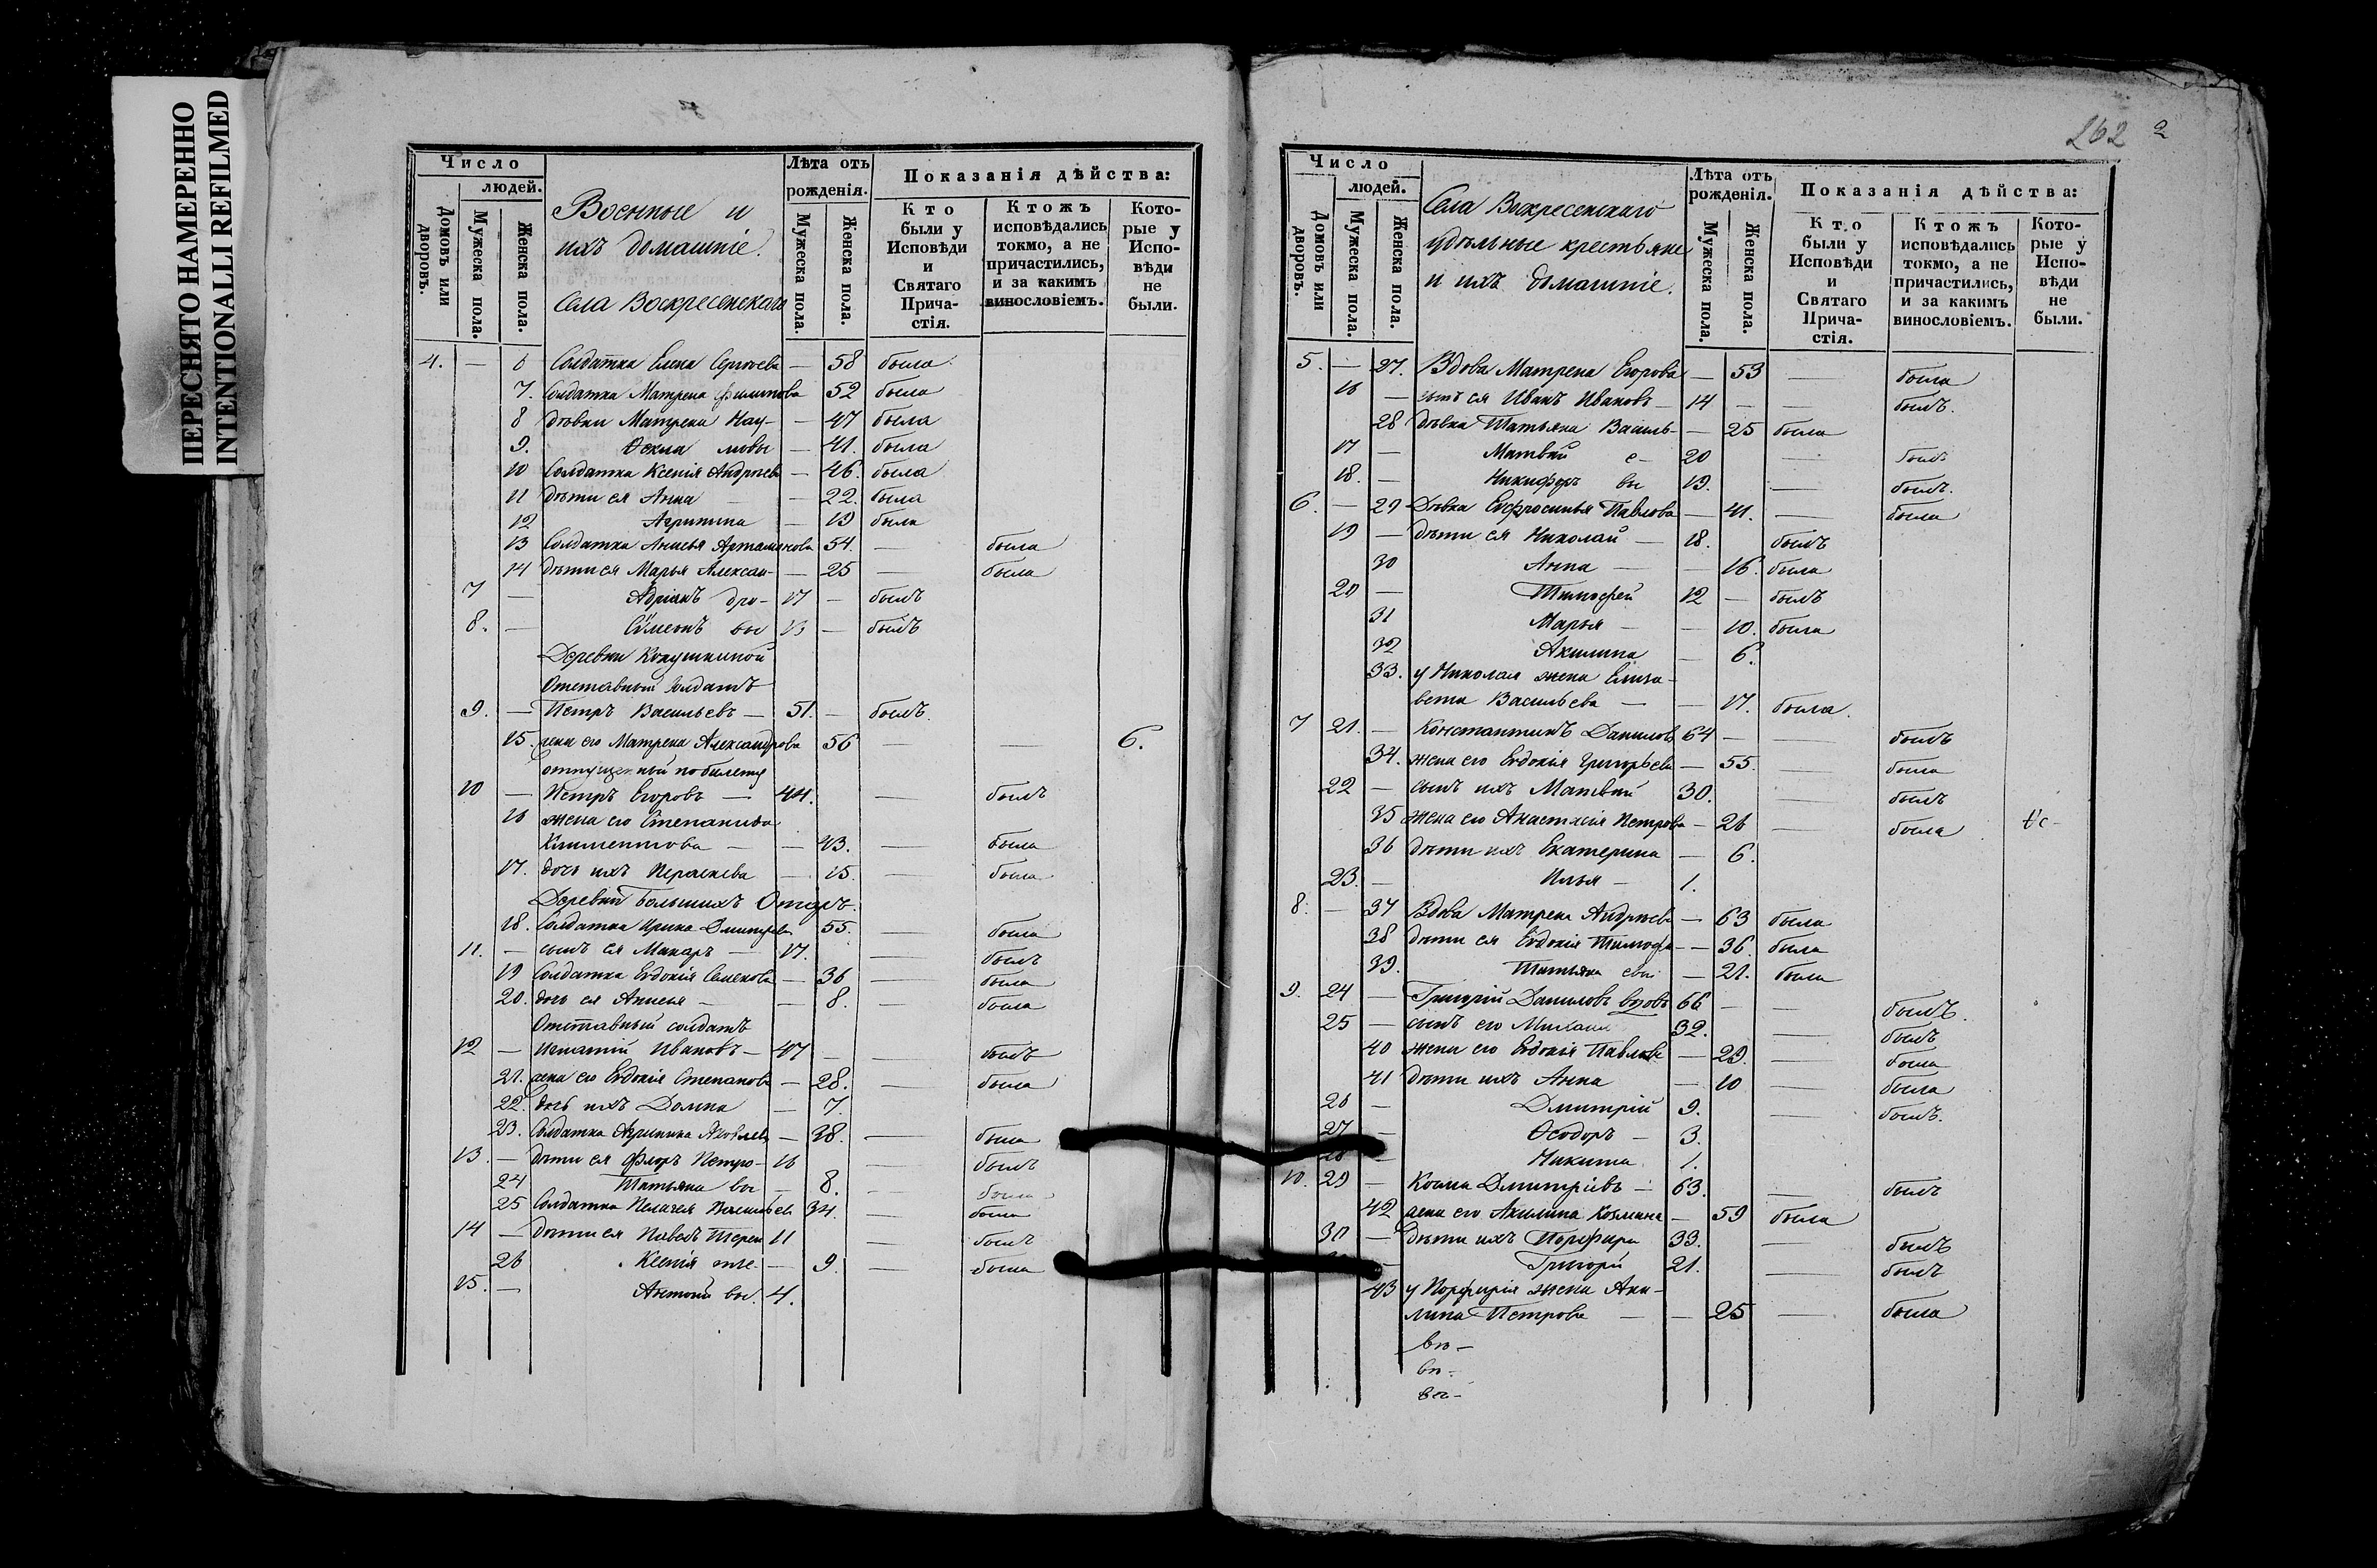 ПЕРЕСНЯТО НАМЕРЕННО
INTENTIONALLI REFILMED
Число
людей.
Домовъ или дворовъ.
Мужеска пола.
Женска пола.
Военные и
ихъ домашніе.
Села Воскресенскаго
Лѣта отъ рожденія.
Мужеска пола.
Женска пола.
Показанія дѣйства:
Кто были у Исповѣди и Святаго Причастія.
Ктожъ исповѣдались токмо, а не причастились, и за какимъ винословіемъ.
Которые у Исповѣди не были.
4. — 6 Солдатка Елена Сергѣева — 58 была
7. Солдатка Матрена Филипова 52 была
8 дѣвки Матрена Нау- — 47 была
9. Ѳекла мовы — 41. была
10 Солдатка Ксенія Андреева — 46. была
11 дѣти ея Анна — 22. была
12 Агрипина — 19 была
13 Солдатка Анисья Артамонова 54. — была
14 дѣти ея Марья Алексан- — 25 — была
7 — Адріанъ дро- 17 — былъ
8. — Сѵмеонъ вы 13 — былъ
Деревни Кокушкиной
Отставный солдатъ
9. — Петръ Васильевъ — 51. — былъ.
15. жена его Матрена Александрова 56 — — 6.
отпущенный по билету
10 — Петръ Егоровъ — 44. — былъ
16 жена его Степанида
Климентова — — 43. — была
17. дочь ихъ — 15. — была
Деревни Большихъ Отаръ.
18. Солдатка Ирина Дмитрева 55. — была
11. — сынъ ея Макаръ — 17. — былъ
19 Солдатка Евдокія Семенова — 36 — была
20. дочь ея Анисья — — 8. — была
Отставный солдатъ
12 — Игнатій Ивановъ — 47 — — былъ
21. жена его Евдокія Степанова — 28. — была
22. дочь ихъ Домна — 7.
23. Солдатка Агрипина Яковлева — 38. — была
13. — дѣти ея Флоръ Петро- 16 — былъ
24 Татьяна вы — 8. — была
25 Солдатка Пелагея Васильева 34. — была
14 — дѣти ея Павелъ Терен 11 — былъ
26 Ксенія тье- — 9. — была
15. — Антоній вы. 4.
262 2
Число
людей.
Домовъ или дворовъ.
Мужеска пола.
Женска пола.
Села Воскресенскаго
удѣльные крестьяне
и ихъ домашніе.
Лѣта отъ рожденія.
Мужеска пола.
Женска пола.
Показанія дѣйства:
Кто были у Исповѣди и Святаго Причастія.
Ктожъ исповѣдались токмо, а не причастились, и за какимъ винословіемъ.
Которые у Исповѣди не были.
5. — 27. Вдова Матрена Егорова — 53 — была
16 — сынъ ея Иванъ Ивановъ — 14 — — былъ.
28 дѣвка Татьяна Василь- — 25 была
17 — Матвей е- 20 — былъ
18. — Никифоръ вы 19. — былъ.
6. — 29 Дѣвка Евфросинья Павлова — 41. — была
19 — дѣти ея Николай — 18. былъ
30 Анна — — 16. была
20 — Тимофей 12 — былъ
31 Марья — — 10. была
32 Акилина — 6.
33. у Николая жена Елиза-
вета Васильева — — 17. была.
7 21. — Константинъ Даниловъ 64 — — былъ
34. жена его Евдокія Григорьева — 55. — была
22 — сынъ ихъ Матвей 30. — былъ
35 жена его Анастасія Петрова — 26 — была
36 дѣти ихъ Екатерина — 6.
23. — Илья — 1.
8. — 37 Вдова Матрена Андреева — 63 была
38 дѣти ея Евдокія Тимофе — 36. была
39. Татьяна евы — 21. была
9. 24 — Григорій Даниловъ вдовъ 66 — — былъ.
25 — сынъ его Михаилъ 32. — былъ
40 жена его Евдокія Павлова — 29. — была
41 дѣти ихъ Анна — 10 — была
26 — Дмитрій 9. — былъ.
27 — Ѳеодоръ — 3.
28 — Никита 1.
10. 29 — Козма Дмитріевъ — 63. — былъ
42 жена его Акилина Козмина — 59 была
30 — дѣти ихъ Порфирій 33. — былъ
Григорій 21. — былъ
43 у Порфирія жена Аки-
лина Петрова — — 25 — была